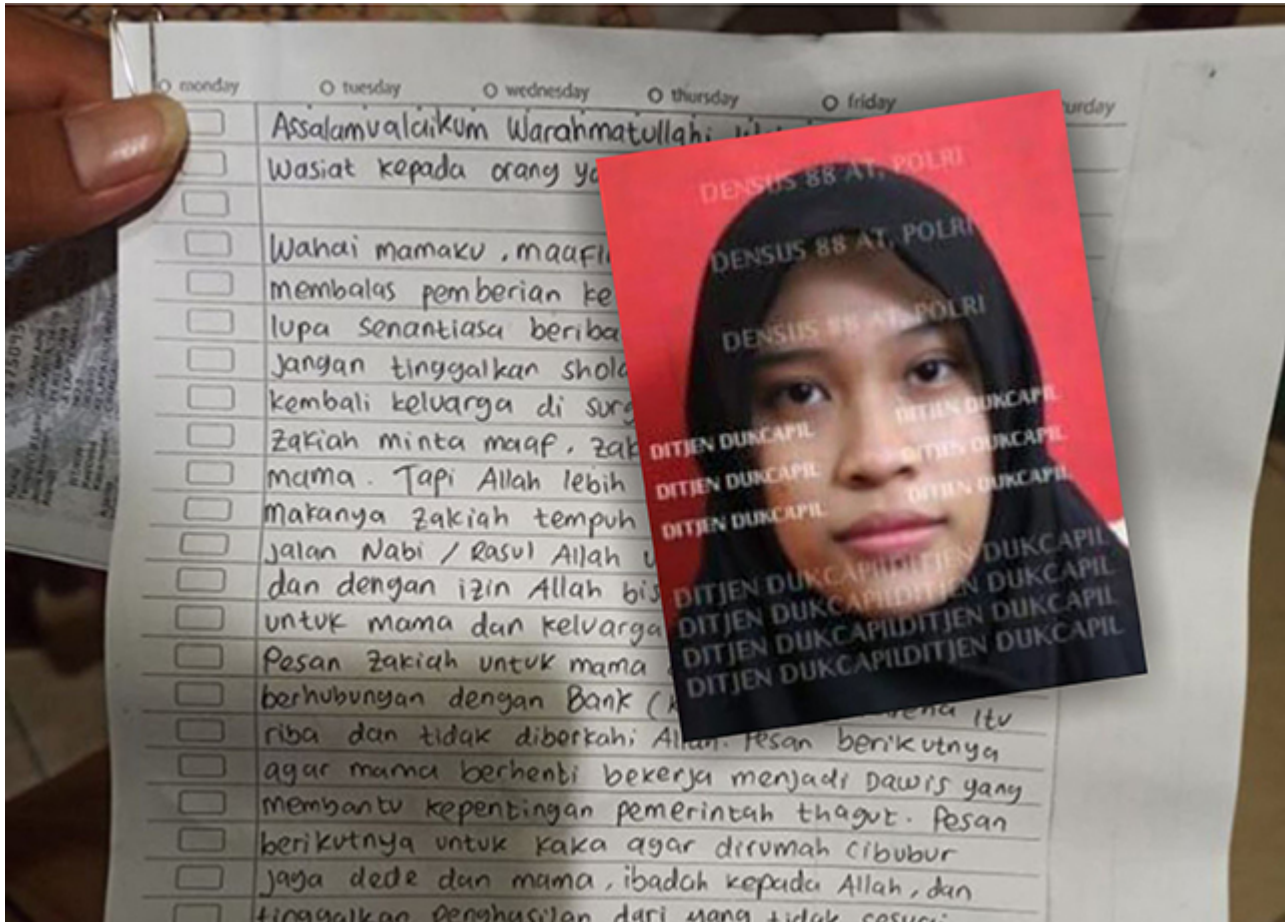 monday tuesday wednesday thursday friday
Assalamualaikum Warahmatullahi
Wasiat kepada orang
Wahai mamaku, maaf
membalas pemberian ke
lupa senantiasa beriba
jangan tinggalkan shola
kembali keluarga di surg
Zakiah minta maaf. zak
mama. Tapi Allah lebih
makanya zakiah tempuh
jalan Nabi / Rasul Allah
dan dengan izin Allah bis
untuk mama dan keluarga
Pesan zakiah untuk mama
berhubungan dengan Bank ( itu
riba dan tidak diberkahi Allah. Pesan berikutnya
agar mama berhenti bekerja menjadi Dawis yang
membantu kepentingan pemerintah thagut. Pesan
berikutnya untuk kaka agar dirumah cibubur
jaga dede dan mama, ibadah kepada Allah, dan
tinggalkan penghasilan dari yang tidak sesuai
DENSUS 88 AT, POLRI
DENSUS 88 AT, POLRI
DENSUS 88 AT, POLRI
DITJEN DUKCAPIL DITJEN DUKCAPIL
DITJEN DUKCAPIL DITJEN DUKCAPIL
DITJEN DUKCAPIL DITJEN DUKCAPIL
DITJEN DUKCAPILDITJEN DUKCAPIL
DITJEN DUKCAPILDITJEN DUKCAPIL
DITJEN DUKCAPILDITJEN DUKCAPIL
DITJEN DUKCAPILDITJEN DUKCAPIL